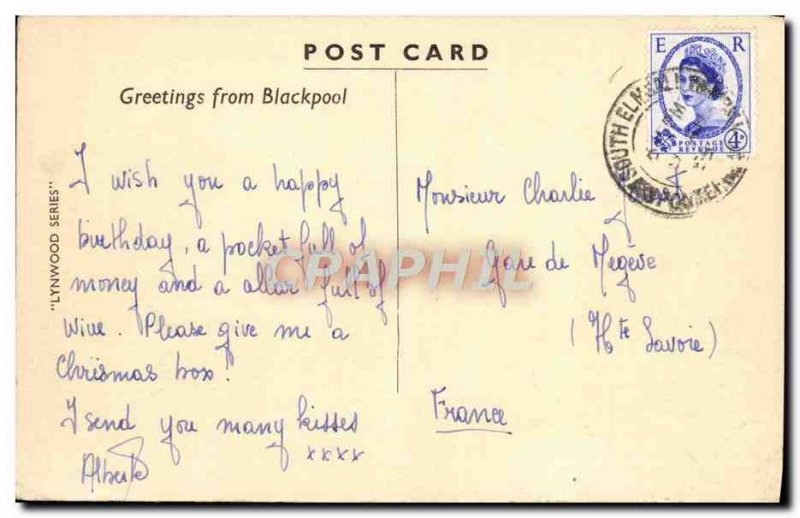 POST CARD
Greetings from Blackpool
"LYNWOOD SERIES"
I wish you a happy
birthday, a pocket full of
money and a allar full of
wine. Please give me a
Chrismas box!
I send you many kisses
xxxx
Alberte
E R
POSTAGE
REVENUE
4D
SOUTH ELMSALL
Monsieur Charlie
Gare de Megève
(Hte Savoie)
France
CPAPHIL